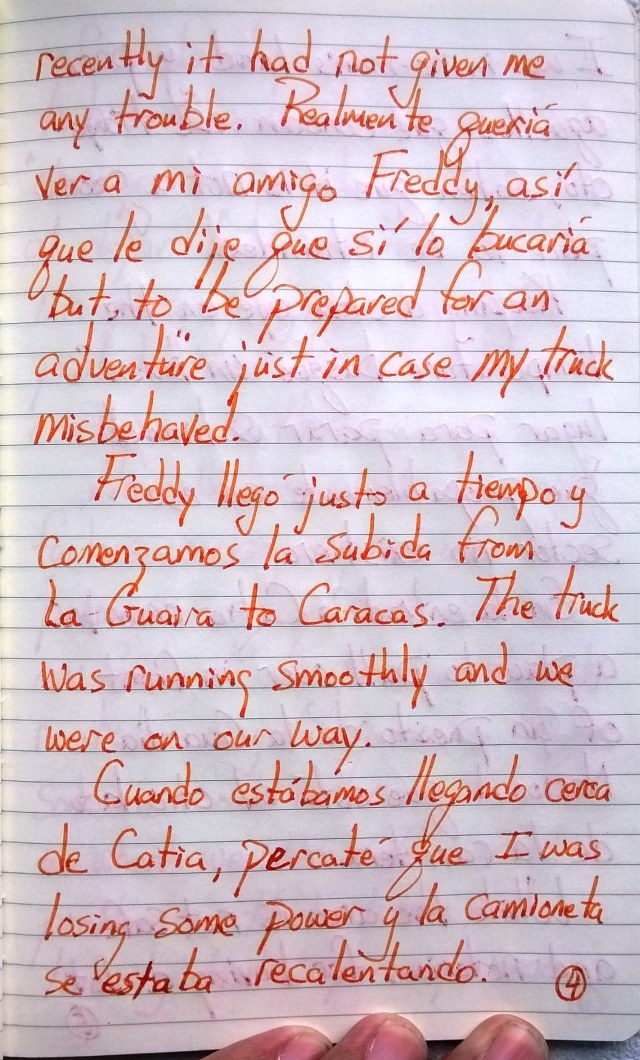 recently it had not given me
any trouble. Realmente queriá
ver a mi amigo Freddy, así
que le dije que sí lo bucariá
but, to be prepared for an
adventure just in case my truck
misbehaved.
Freddy llegó justo a tiempo y
comenzamos la subida from
La Guaira to Caracas. The truck
was running smoothly and we
were on our way.
Cuando estábamos llegando cerca
de Catia, percaté que I was
losing some power y la camioneta
se estaba recalentando.
4